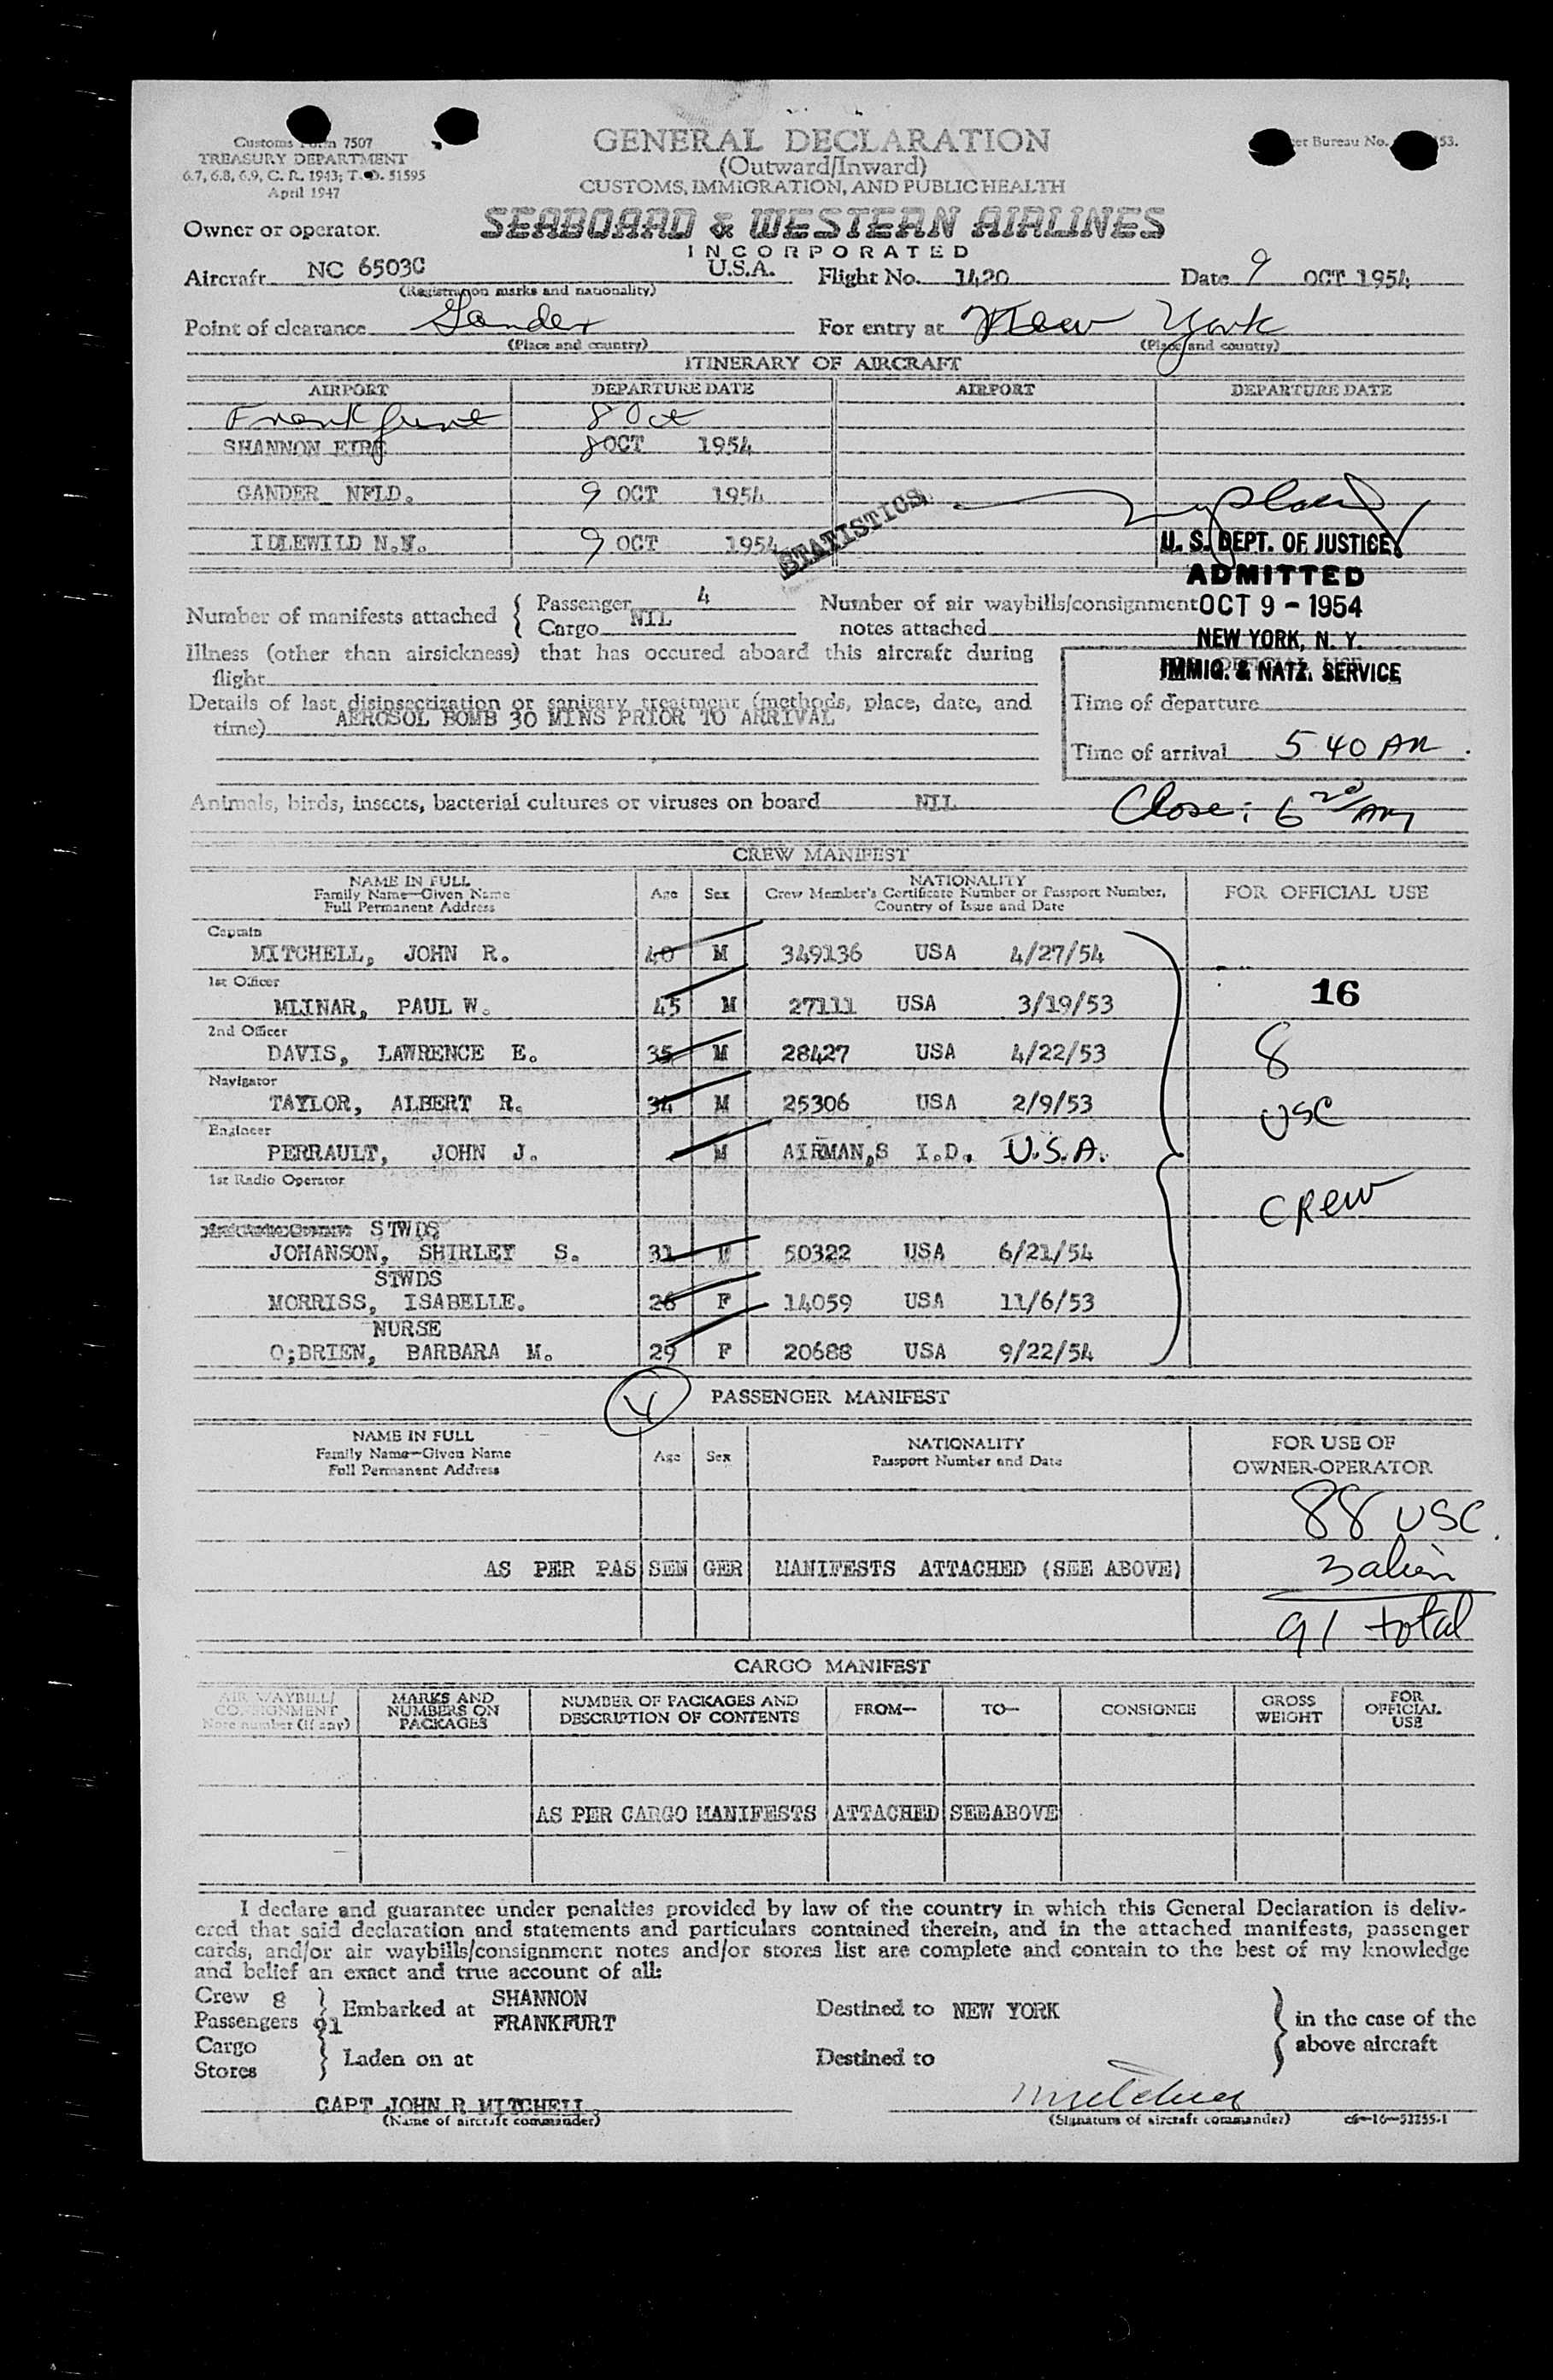 Customs Form 7507
TREASURY DEPARTMENT
6.7, 6.8, 6.9, C. R. 1943; T. D. 51595
April 1947
GENERAL DECLARATION
(Outward/Inward)
CUSTOMS, IMMIGRATION, AND PUBLIC HEALTH
Bureau No. 53.
Owner or operator.
SEABOARD & WESTERN AIRLINES
INCORPORATED
Aircraft NC 6503C U.S.A. Flight No. 1420 Date 9 OCT 1954
(Registration marks and nationality)
Point of clearance Gander For entry at New York
(Place and country) (Place and country)
ITINERARY OF AIRCRAFT
AIRPORT DEPARTURE DATE AIRPORT DEPARTURE DATE
Frankfurt 8 Oct
SHANNON EIRE 8 OCT 1954
GANDER NFLD. 9 OCT 1954
STATISTICS
IDLEWILD N.Y. 9 OCT 1954
U. S. DEPT. OF JUSTICE
ADMITTED
OCT 9 - 1954
NEW YORK, N. Y.
IMMIG. & NATZ. SERVICE
Number of manifests attached { Passenger 4 Number of air waybills/consignment
Cargo NIL notes attached
Illness (other than airsickness) that has occured aboard this aircraft during
flight
Details of last disinsectization or sanitary treatment (methods, place, date, and
time) AEROSOL BOMB 30 MINS PRIOR TO ARRIVAL
Time of departure
Time of arrival 5 40 AM
Animals, birds, insects, bacterial cultures or viruses on board NIL
Close: 6 20 AM
CREW MANIFEST
NAME IN FULL
Family Name—Given Name
Full Permanent Address
Age Sex
NATIONALITY
Crew Member's Certificate Number or Passport Number,
Country of Issue and Date
FOR OFFICIAL USE
Captain
MITCHELL, JOHN R. 40 M 349136 USA 4/27/54
1st Officer
MLINAR, PAUL W. 45 M 27111 USA 3/19/53 16
2nd Officer
DAVIS, LAWRENCE E. 35 M 28427 USA 4/22/53 8
Navigator
TAYLOR, ALBERT R. 34 M 25306 USA 2/9/53 USC
Engineer
PERRAULT, JOHN J. M AIRMAN,S I.D. U.S.A.
1st Radio Operator
CREW
STWDS
JOHANSON, SHIRLEY S. 31 F 50322 USA 6/21/54
STWDS
MORRISS, ISABELLE. 26 F 14059 USA 11/6/53
NURSE
O;BRIEN, BARBARA M. 29 F 20688 USA 9/22/54
PASSENGER MANIFEST
NAME IN FULL
Family Name—Given Name
Full Permanent Address
Age Sex
NATIONALITY
Passport Number and Date
FOR USE OF
OWNER-OPERATOR
88 USC.
AS PER PAS SEN GER MANIFESTS ATTACHED (SEE ABOVE) 3 alien
91 total
CARGO MANIFEST
AIR WAYBILL/
CONSIGNMENT
Note number (if any)
MARKS AND
NUMBERS ON
PACKAGES
NUMBER OF PACKAGES AND
DESCRIPTION OF CONTENTS
FROM— TO— CONSIGNEE
GROSS
WEIGHT
FOR
OFFICIAL
USE
AS PER CARGO MANIFESTS ATTACHED SEE ABOVE
I declare and guarantee under penalties provided by law of the country in which this General Declaration is deliv-
ered that said declaration and statements and particulars contained therein, and in the attached manifests, passenger
cards, and/or air waybills/consignment notes and/or stores list are complete and contain to the best of my knowledge
and belief an exact and true account of all:
Crew 8 } Embarked at SHANNON Destined to NEW YORK } in the case of the
Passengers 91 FRANKFURT above aircraft
Cargo } Laden on at Destined to
Stores
CAPT JOHN R MITCHELL Mitchell
(Name of aircraft commander) (Signature of aircraft commander) c6—16—52255-1